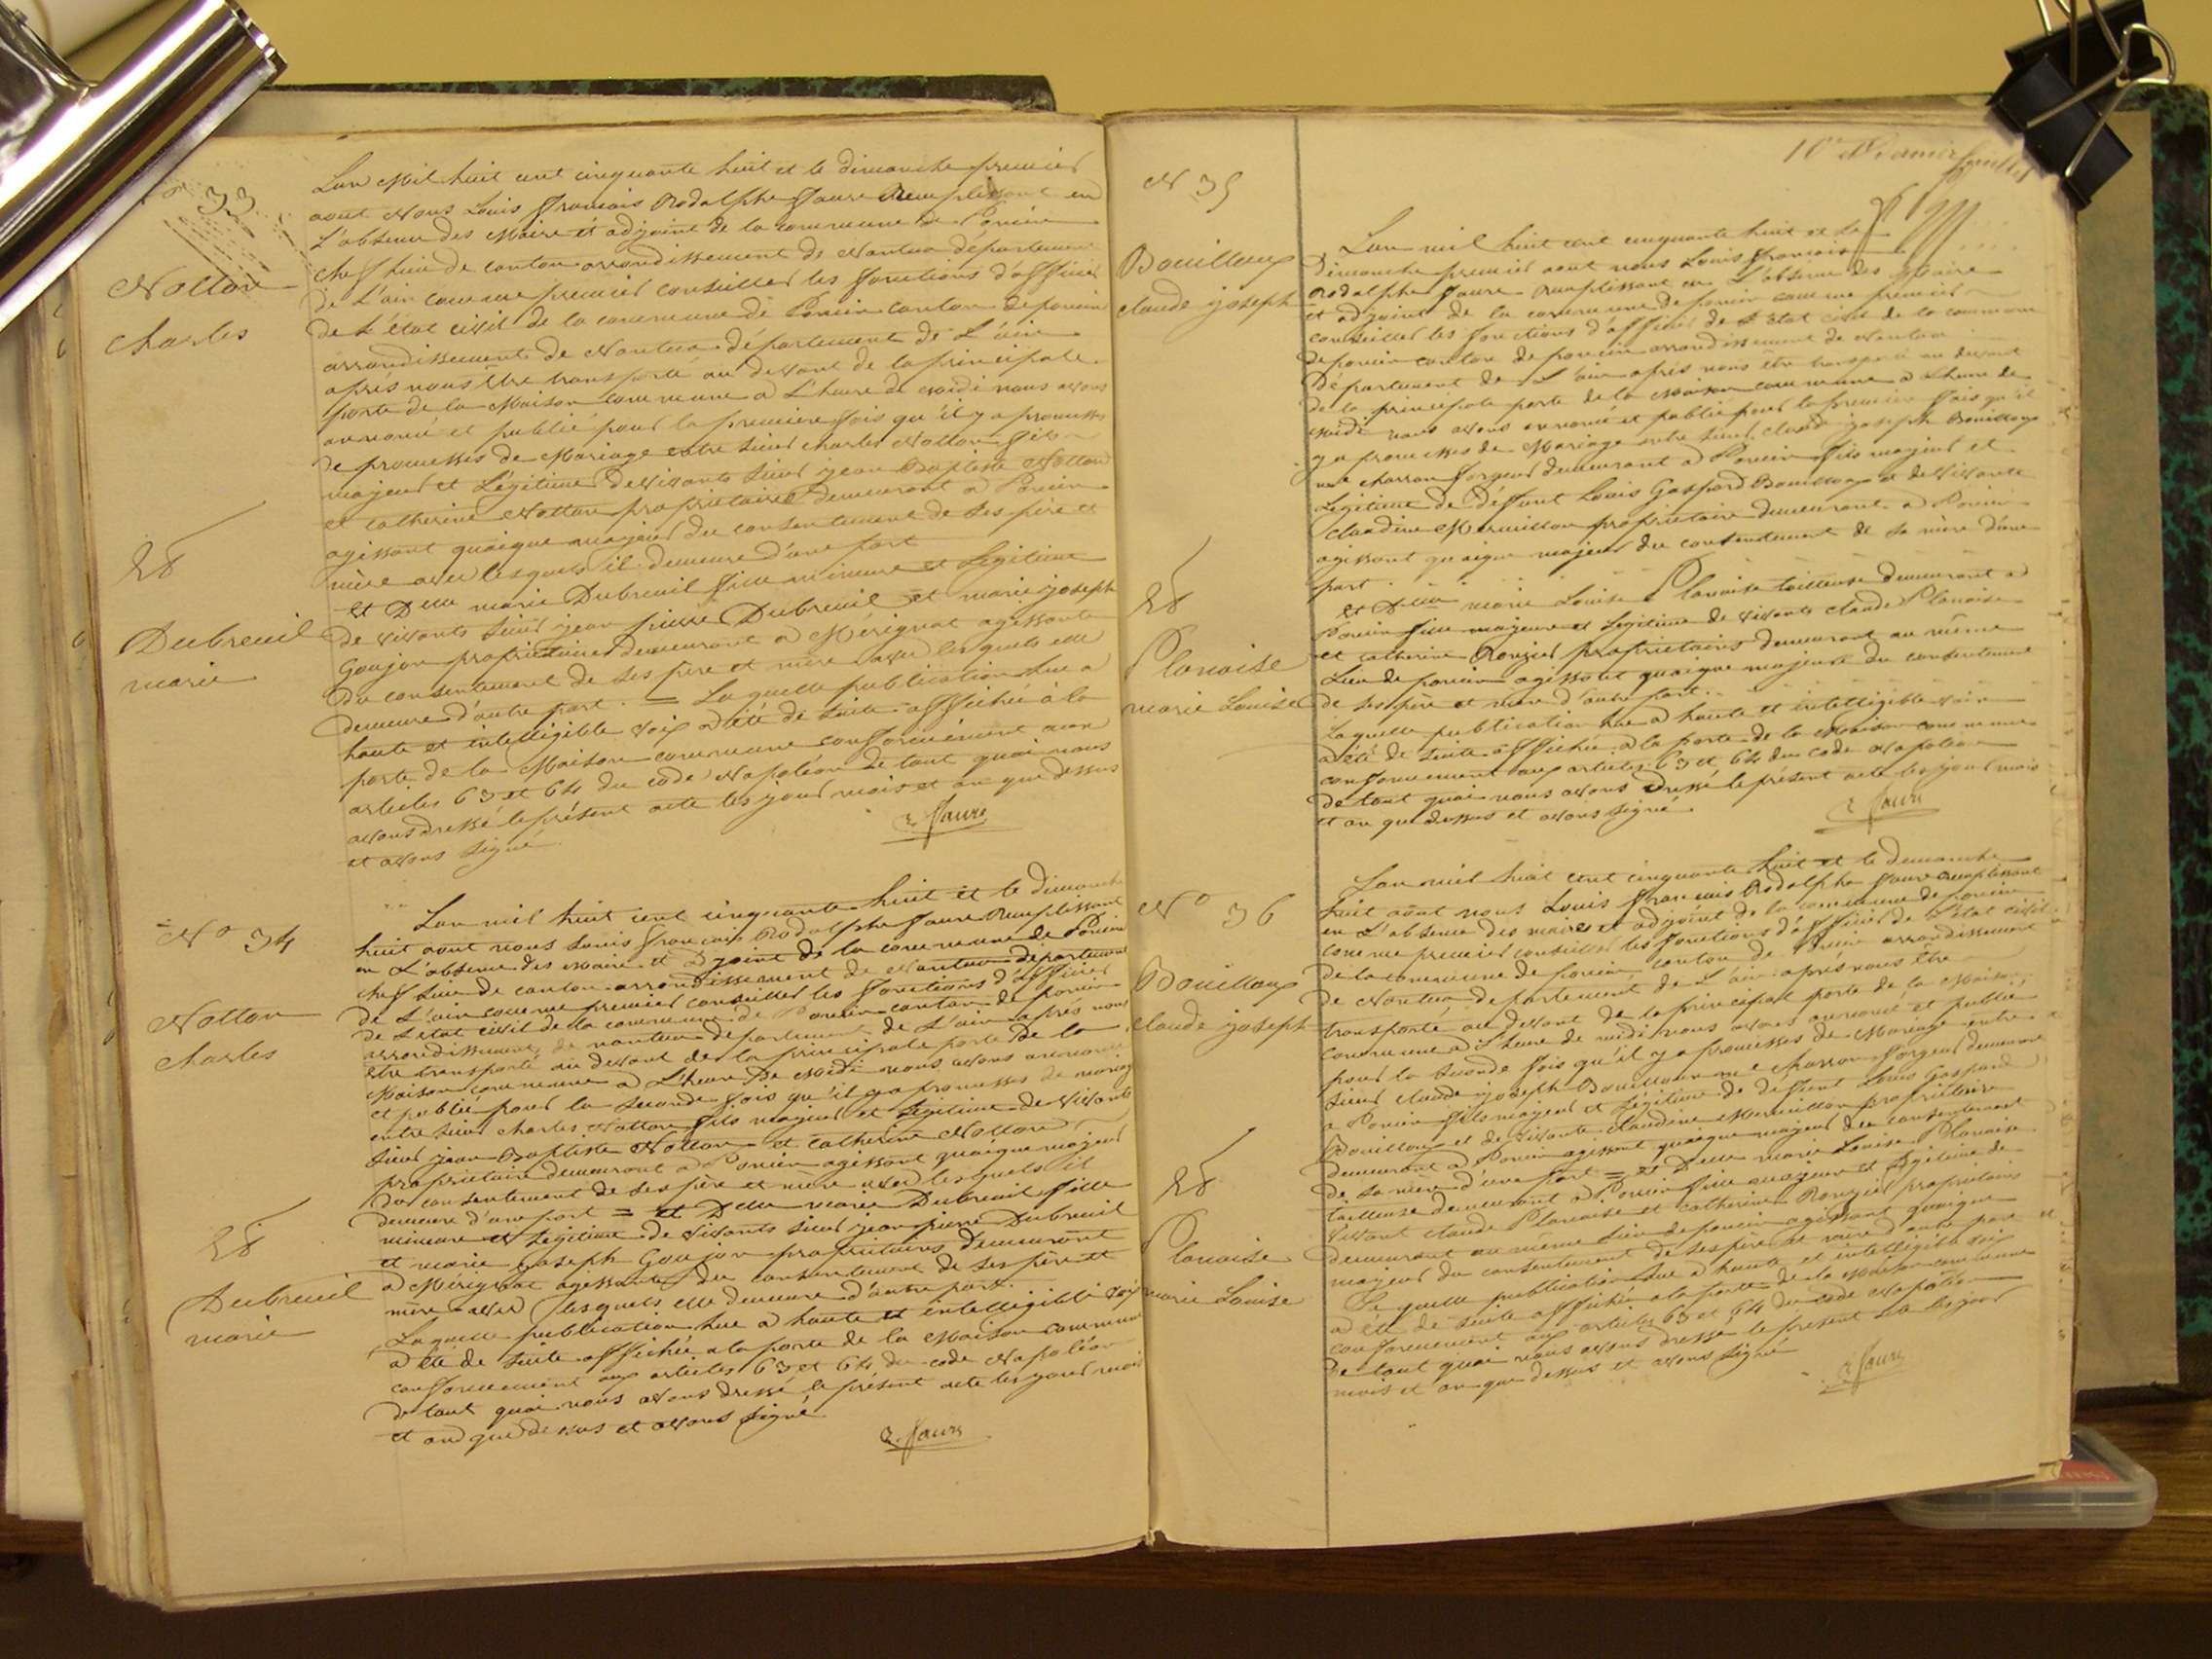 N° 33
Notton
Charles
&
Dubreuil
marie
L'an Mil huit cent cinquante huit et le dimanche premier
aout Nous Louis François Rodolphe Faure Remplissant en
L'absence des Maire et adjoint de la commune de Poncin
chef lieu de canton arrondissement de Nantua departement
de L'ain comme premier conseiller les fonctions d'officier
de L'état civil de la commune de Poncin canton de poncin
arrondissement de Nantua département de L'ain
après nous être transporté au devant de la principale
porte de la Maison commune a L'heure de midi nous avons
annoncé et publié pour la première fois qu'il y a promesses
de promesses de Mariage entre sieur Charles Notton fils
majeur et Légitime de vivants sieur jean Baptiste Notton
et catherine Notton propriétaires demeurant a Poncin
agissant quoique majeur du consentement de ses père et
mère avec lesquels il demeure d'une part
et Delle marie Dubreuil fille mineure et Légitime
de vivants sieur jean pierre Dubreuil et marie joseph
Goujon propriétaires demeurant a Mérignat agissante
du consentement de ses père et mère avec lesquels elle
demeure d'autre part. = Laquelle publication lue a
haute et intelligible voix a été de suite affichée à la
porte de la Maison commune conformément aux
articles 63 et 64 du code Napoléon de tout quoi nous
avons dressé le présent acte les jour mois et an que dessus
et avons signé
R. Faure
N° 34
Notton
charles
&
Dubreuil
marie
L'an mil huit cent cinquante huit et le dimanche
huit aout nous Louis François Rodolphe Faure Remplissant
en L'absence des Maire et Djoint de la commune de Poncin
chef Lieu de canton arrondissement de Nantua département
de L'ain comme premier conseiller les fonctions d'officier
de L'état civil de la commune de Poncin canton de poncin
arrondissement de nantua departement de L'ain après nous
être transporté au devant de la principale porte de la
Maison commune a L'heure De Midi nous avons annoncé
et publié pour la seconde fois qu'il y a promesses de mariage
entre sieur charles Notton fils majeur et Légitime de vivants
sieur jean Baptiste Notton et catherine Notton
propriétaire demeurant a Poncin agissant quoique majeur
du consentement de ses père et mère avec lesquels il
demeure d'une part = et Delle marie Dubreuil fille
mineure et Légitime de vivants sieur jean pierre Dubreuil
et marie joseph Goujon propriétaires demeurant
a Mérignat agissante du consentement de ses père et
mère avec lesquels elle demeure d'autre part.
Laquelle publication lue a haute et intelligible voix
a été de suite affichée a la porte de la Maison commune
conformément aux articles 63 et 64 du code Napoléon
de tout quoi nous avons dressé le présent acte les jour mois
et and que dessus et avons signé
R. Faure
10e Dernier feuillet
N 35
Bouilloux
claude joseph
&
Planaise
marie Louise
L'an mil huit cent cinquante huit et le
dimanche premier aout nous Louis François
Rodolphe Faure Remplissant en L'absence des Maire
et adjoint de la commune de poncin comme premier
conseiller les fonctions d'officier de L'état civil de la commune
de poncin canton de poncin arrondissement de Nantua
département de L'ain après nous être transporté au devant
de la principale porte de la Maison commune a L'heure de
midi nous avons annoncé et publié pour la première fois qu'il
y a promesses de Mariage entre sieur claude joseph Bouilloux
me charron forgeur demeurant a Poncin fils majeur et
Légitime de Déffunt Louis Gaspard Bouilloux et de Vivante
claudine Mermillon propriétaire demeurant a Poncin
agissant quoique majeur du consentement de sa mère d'une
part.
et Delle marie Louise Planaise tailleuse demeurant a
Poncin fille majeure et Légitime de vivants claude Planaise
et catherine Rongier propriétaires demeurant au même
Lieu de poncin agissant quoique majeure du consentement
de ses père et mère d'autre part.
Laquelle publication lue a haute et intelligible voix
a été de suite affichée a la porte de la Maison commune
conformément aux articles 63 et 64 du code Napoléon
de tout quoi nous avons Dressé le présent acte les jour mois
et an que dessus et avons signé.
R. Faure
N° 36
Bouilloux
claude joseph
&
Planaise
marie Louise
L'an mil huit cent cinquante huit et le dimanche
huit aout nous Louis François Rodolphe Faure Remplissant
en L'absence des maire et adjoint de la commune de poncin
comme premier conseiller les fonctions d'officier de L'état civil
de la commune de poncin canton de Poncin arrondissement
de Nantua departement de L'ain après nous être
transporté au devant de la principal porte de la Maison
commune a L'heure de midi nous avons annoncé et publié
pour la seconde fois qu'il y a promesses de Mariage entre
sieur claude joseph Bouilloux me charron forgeur demeurant
a Poncin fils majeur et Légitime de déffunt Louis Gaspard
Bouilloux et de vivante claudine Mermillon propriétaire
demeurant a Poncin agissant quoique majeur du consentement
de sa mère d'une part = et Delle marie Louise Planaise
tailleuse demeurant a Poncin fille majeure et Légitime de
vivant claude Planaise et catherine Rongier propriétaires
demeurant au même Lieu de poncin agissant quoique
majeur du consentement de ses père et mère d'autre part
Le quelle publication lue a haute et intelligible voix
a été de suite affichée a la porte de la Maison commune
conformément aux articles 63 et 64 du code Napoléon
de tout quoi nous avons dressé le présent acte les jour
mois et an que dessus et avons signé
R. Faure